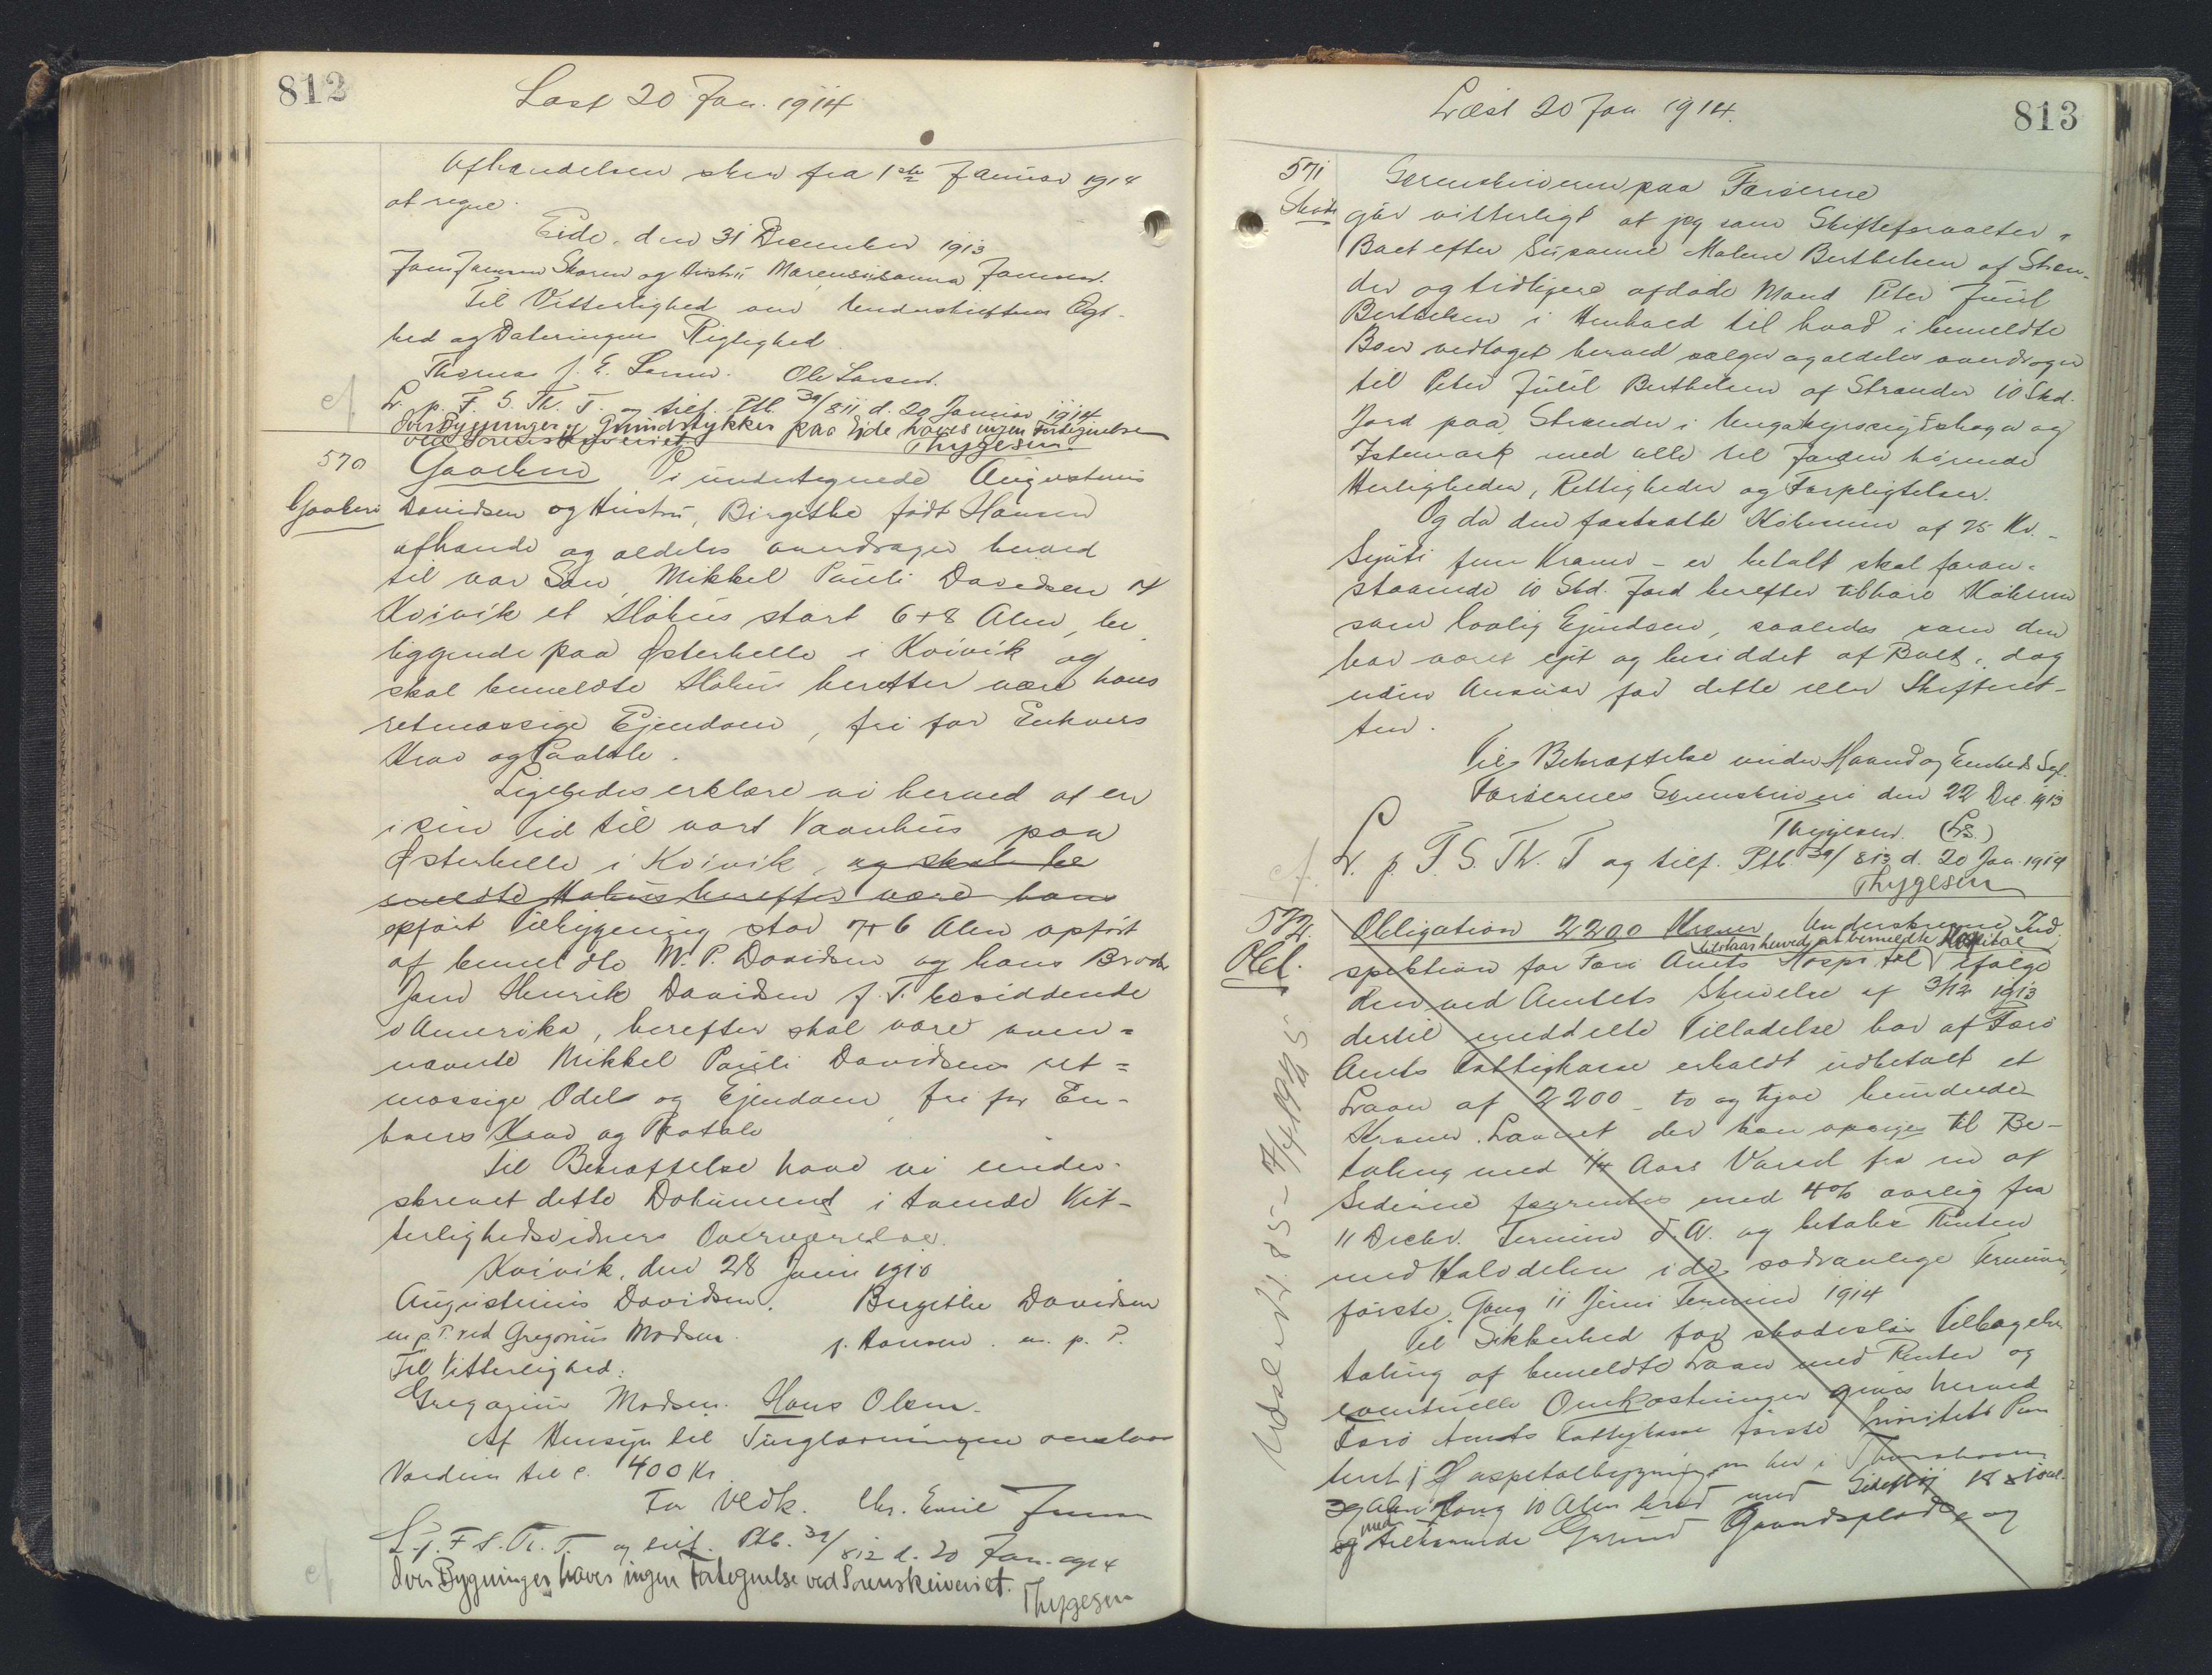 812
Læst 20 Jan. 1914
Afhændelsen sker fra 1ste Januar 1914
at regne.
Eide, den 31 December 1913
Jens Jensen Skoren og Hustru Maren Susanna Jensen.
Til Vitterlighed om Underskriftens Ægt-
hed og Dateringens Rigtighed
Thomas J. E. Larsen. Ole Larsen.
L. p. F. S. Th. T. og tilf. Ptb. 39/811 d. 20 Januar 1914
Over Bygninger og Grundstykker paa Eide haves ingen Fortegnelse
ved Sorenskriveriet.
Thygesen
570
Gavebrev
Gavebrev Vi undertegnede Augustinus
Davidsen og Hustru, Birgethe født Hansen
afhænde og aldeles overdrager herved
til vor Søn, Mikkel Pauli Davidsen af
Kvivik et Høhus stort 6+8 Alen, be
liggende paa Østerhelle i Kvivik og
skal bemeldte Høhus herefter være hans
retmæssige Ejendom, fri for Enhvers
Krav og Paatale.
Ligeledes erklære vi herved at en
i sin Tid til vort Vaanhus paa
Østerhelle i Kvivik, og skal be
meldte Høhus herefter være hans
opført Tilbygning stor 7+6 Alen opført
af bemeldte M. P. Davidsen og hans Broder
Jens Henrik Davidsen p. T. bosiddende
i Amerika, herefter skal være oven=
nævnte Mikkel Pauli Davidsens ret=
mæssige Odel og Ejendom, fri for En-
hvers Krav og Paatale
Til Bekræftelse have vi under-
skrevet dette Dokument i tvende Vit-
terlighedsvidners Overværelse.
Kvivik, den 28 Juni 1910
Augustinus Davidsen. Birgethe Davidsen
m. p. P. ved Gregorius Madsen. f. Hansen. m. p. P.
Til Vitterlighed:
Gregorius Madsen. Hans Olsen.
Af Hensyn til Tinglæsningen ansættes
Værdien til c. 400 Kr.
For Vedk. Chr. Emil Jensen
L. p. F. S. Th. T. og tilf. Ptb. 39/812 d. 20 Jan. 1914
Over Bygninger haves ingen Fortegnelse ved Sorenskriveriet.
Thygesen
813
Læst 20 Jan 1914.
571
Skøde
Sorenskriveren paa Færøerne
gør vitterligt at jeg som Skifteforvalter i
Boet efter Susanne Malene Berthelsen af Stren-
der og tidligere afdøde Mand Peter Juul
Berthelsen i Henhold til hvad i bemeldte
Boer vedtaget herved sælger og aldeles overdrager
til Peter Juul Berthelsen af Strænder 10 Skd.
Jord paa Strænder i
Istemark med alle til Jorden hørende
Herligheder, Rettigheder og Forpligtelser.
Og da den fastsatte Købesum af 75 Kr. -
Syvti fem Kroner - er betalt skal foran-
staaende 10 Skd. Jord herefter tilhøre Køberen
som lovlig Ejendom, saaledes som den
har været ejet og besiddet af Boet, dog
uden Ansvar for dette eller Skifteret-
ten.
Til Bekræftelse under Haand og Embeds Segl.
Færøernes Sorenskriveri den 22 Dec. 1913
Thygesen. (L.S.)
L. p. F. S. Th. T og tilf. Ptb. 39/813 d. 20 Jan. 1914
Thygesen
572.
Obl.
Udslettet 7/4 1945
Obligation 2200 Kroner Underskrevne Ind
tilstaar herved, at bemeldte Hospital
spektion for Færø Amts Hospital ifølge
den ved Amtets Skrivelse af 3/12 1913
dertil meddelte Tilladelse har af Færø
Amts Fattigkasse erholdt udbetalt et
Laan af 2200 - to og tyve hundrede
Kroner. Laanet der kan opsiges til Be-
taling med 1/4 Aars Varsel fra en af
Siderne forrentes med 4% aarlig fra
11 Decbr. Termin d. A. og betales Renten
med Halvdelen i de sædvanlige Terminer,
første Gang 11 Juni Termin 1914
Til Sikkerhed for skadesløs Tilbagebe
taling af bemeldte Laan med Renter og
eventuelle Omkostninger gives herved
Færø Amts Fattigkasse første Prioritets Pan
teret i Hospitalbygningen her i Thorshavn
39 Alen lang 10 Alen bred med Sidefløj 18 x 10 al.
og med tilhørende Grund Gaardsplads og